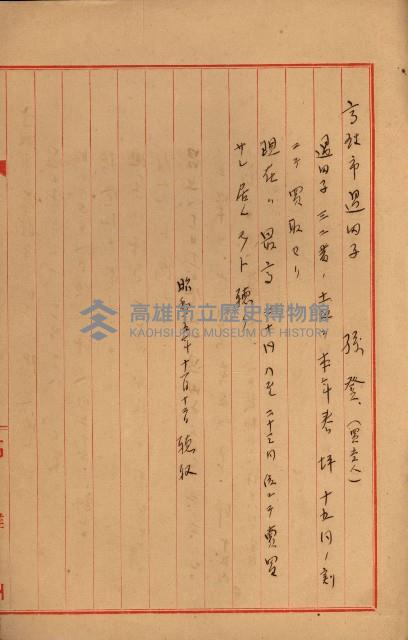 高雄市過田子 孫登（買主人）
過田子三二番ノ土地ヲ本年春坪十五円ノ割
ニテ買取セリ
現在ハ最高二十円乃至二十三円位ニテ賣買
サレ居ル
昭和 年十一月十 日聴取
高雄市立歷史博物館
KAOHSIUNG MUSEUM OF HISTORY
高雄州